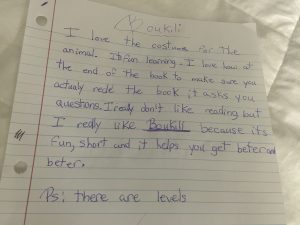 Boukili
I love the costume for the
animal. Its fun learning. I love how at
the end of the book to make sure you
actualy rede the book it asks you
questions. I really don't like reading but
I redly like Boukili because its
fun, short and it helps you get beter and
beter.
Ps: there are levels